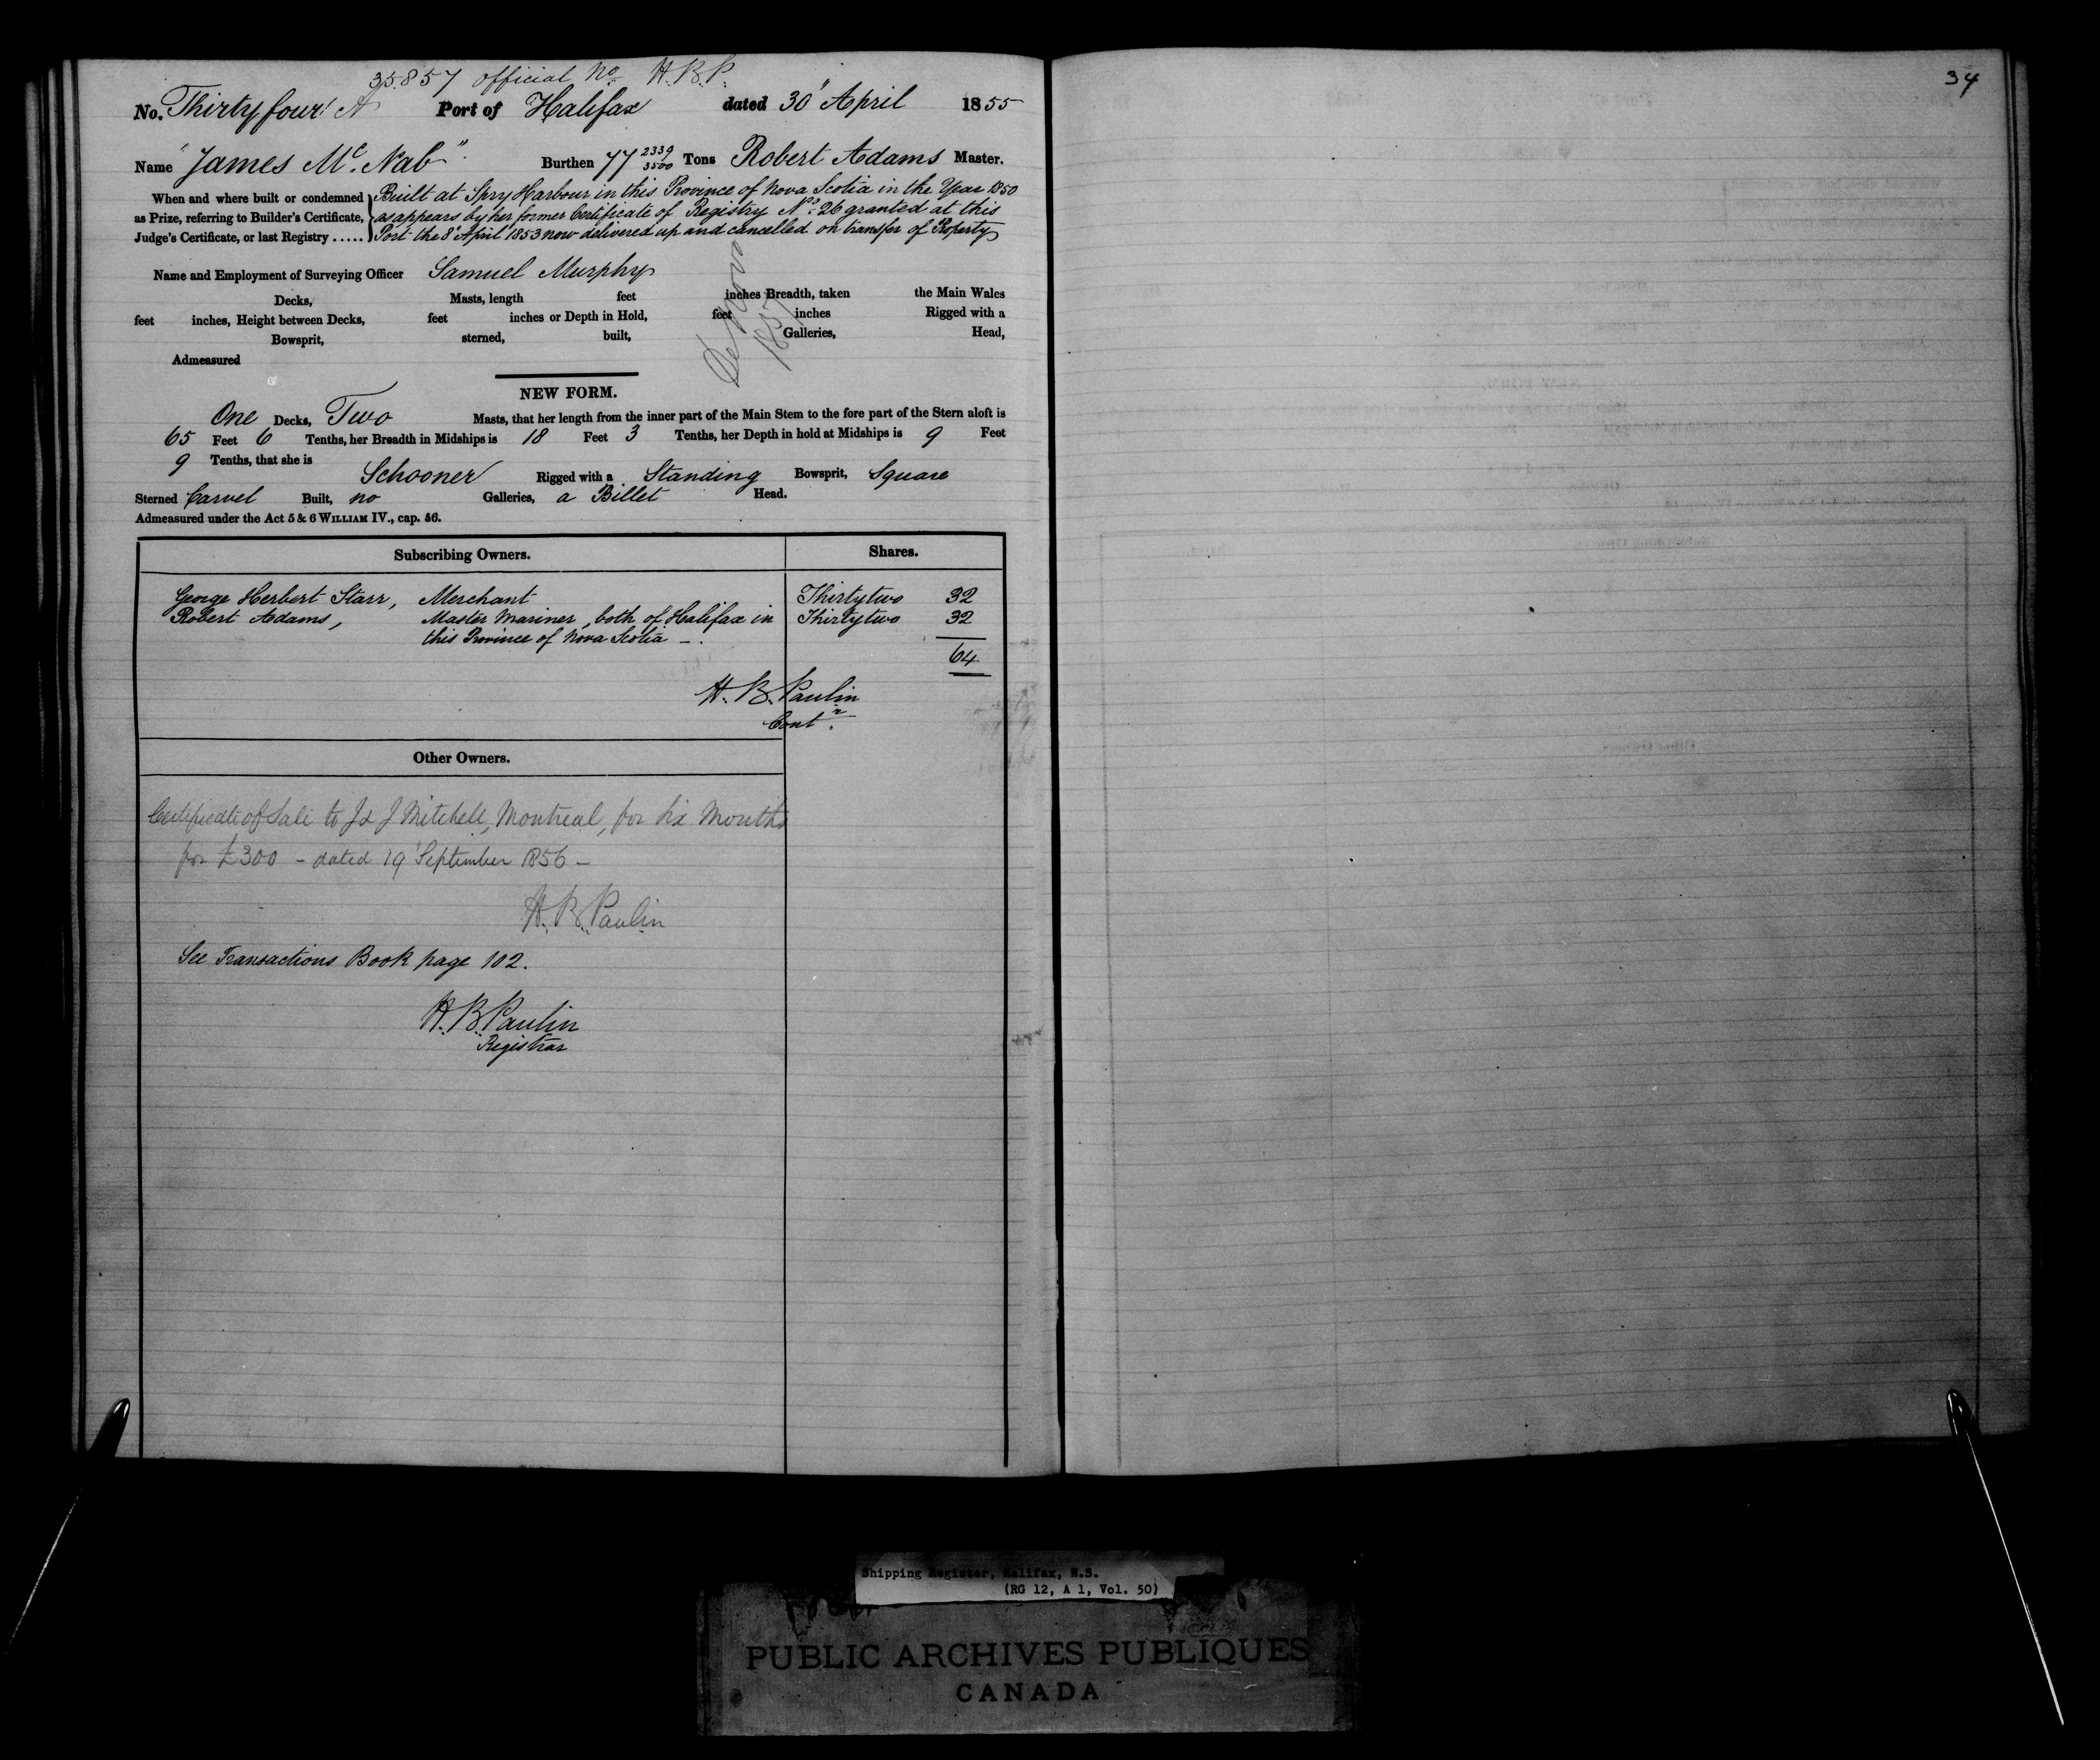 35857 official No. H.B.P.
34
No. Thirty four A Port of Halifax dated 30" April 1855
Name "James McNab" Burthen 77 2339/3500 Tons Robert Adams Master.
When and where built or condemned as Prize, referring to Builder's Certificate, Judge's Certificate, or last Registry .....
Built at Spry Harbour in this Province of Nova Scotia in the Year 1850
as appears by her former Certificate of Registry No. 26 granted at this
Port the 8" April 1853 now delivered up and cancelled on transfer of Property
Name and Employment of Surveying Officer Samuel Murphy
Decks, Masts, length feet inches Breadth, taken the Main Wales
feet inches, Height between Decks, feet inches or Depth in Hold, feet inches Rigged with a
Bowsprit, sterned, built, Galleries, Head,
Admeasured
1857
NEW FORM.
One Decks, Two Masts, that her length from the inner part of the Main Stem to the fore part of the Stern aloft is
65 Feet 6 Tenths, her Breadth in Midships is 18 Feet 3 Tenths, her Depth in hold at Midships is 9 Feet
9 Tenths, that she is Schooner Rigged with a Standing Bowsprit, Square
Sterned Carvel Built, no Galleries, a Billet Head.
Admeasured under the Act 5 & 6 WILLIAM IV., cap. 56.
Subscribing Owners. Shares.
George Herbert Starr, Merchant Thirtytwo 32
Robert Adams, Master Mariner, both of Halifax in Thirtytwo 32
this Province of Nova Scotia -.
64
H. B. Paulin
Contr.
Other Owners.
Certificate of Sale to J J Mitchell, Montreal, for six Months
for £300 - dated 19" September 1856 -
H. B. Paulin
See Transactions Book page 102.
H. B. Paulin
Registrar
Shipping Register, Halifax, N.S.
(RG 12, A 1, Vol. 50)
PUBLIC ARCHIVES PUBLIQUES
CANADA